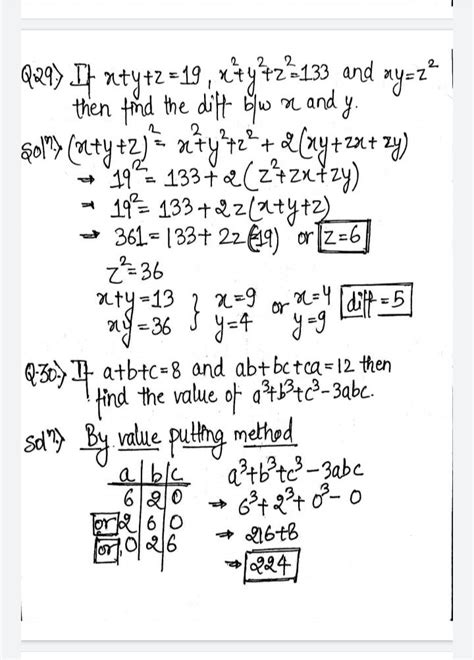 Q.29) If x+y+z=19, x²+y²+z²=133 and xy=z²
then find the diff b/w x and y.
Solⁿ) (x+y+z)² = x²+y²+z² + 2(xy+zx+zy)
→ 19² = 133+2(z²+zx+zy)
→ 19² = 133+2z(x+y+z)
→ 361=133+2z(19) or z=6
z²=36
x+y=13 } x=9 or x=4 diff=5
xy=36 } y=4 y=9
Q.30) If a+b+c=8 and ab+bc+ca=12 then
find the value of a³+b³+c³-3abc.
Solⁿ) By value putting method
a b c a³+b³+c³-3abc
6 2 0 → 6³+2³+0³-0
or 2 6 0 → 216+8
or 0 2 6 → 224